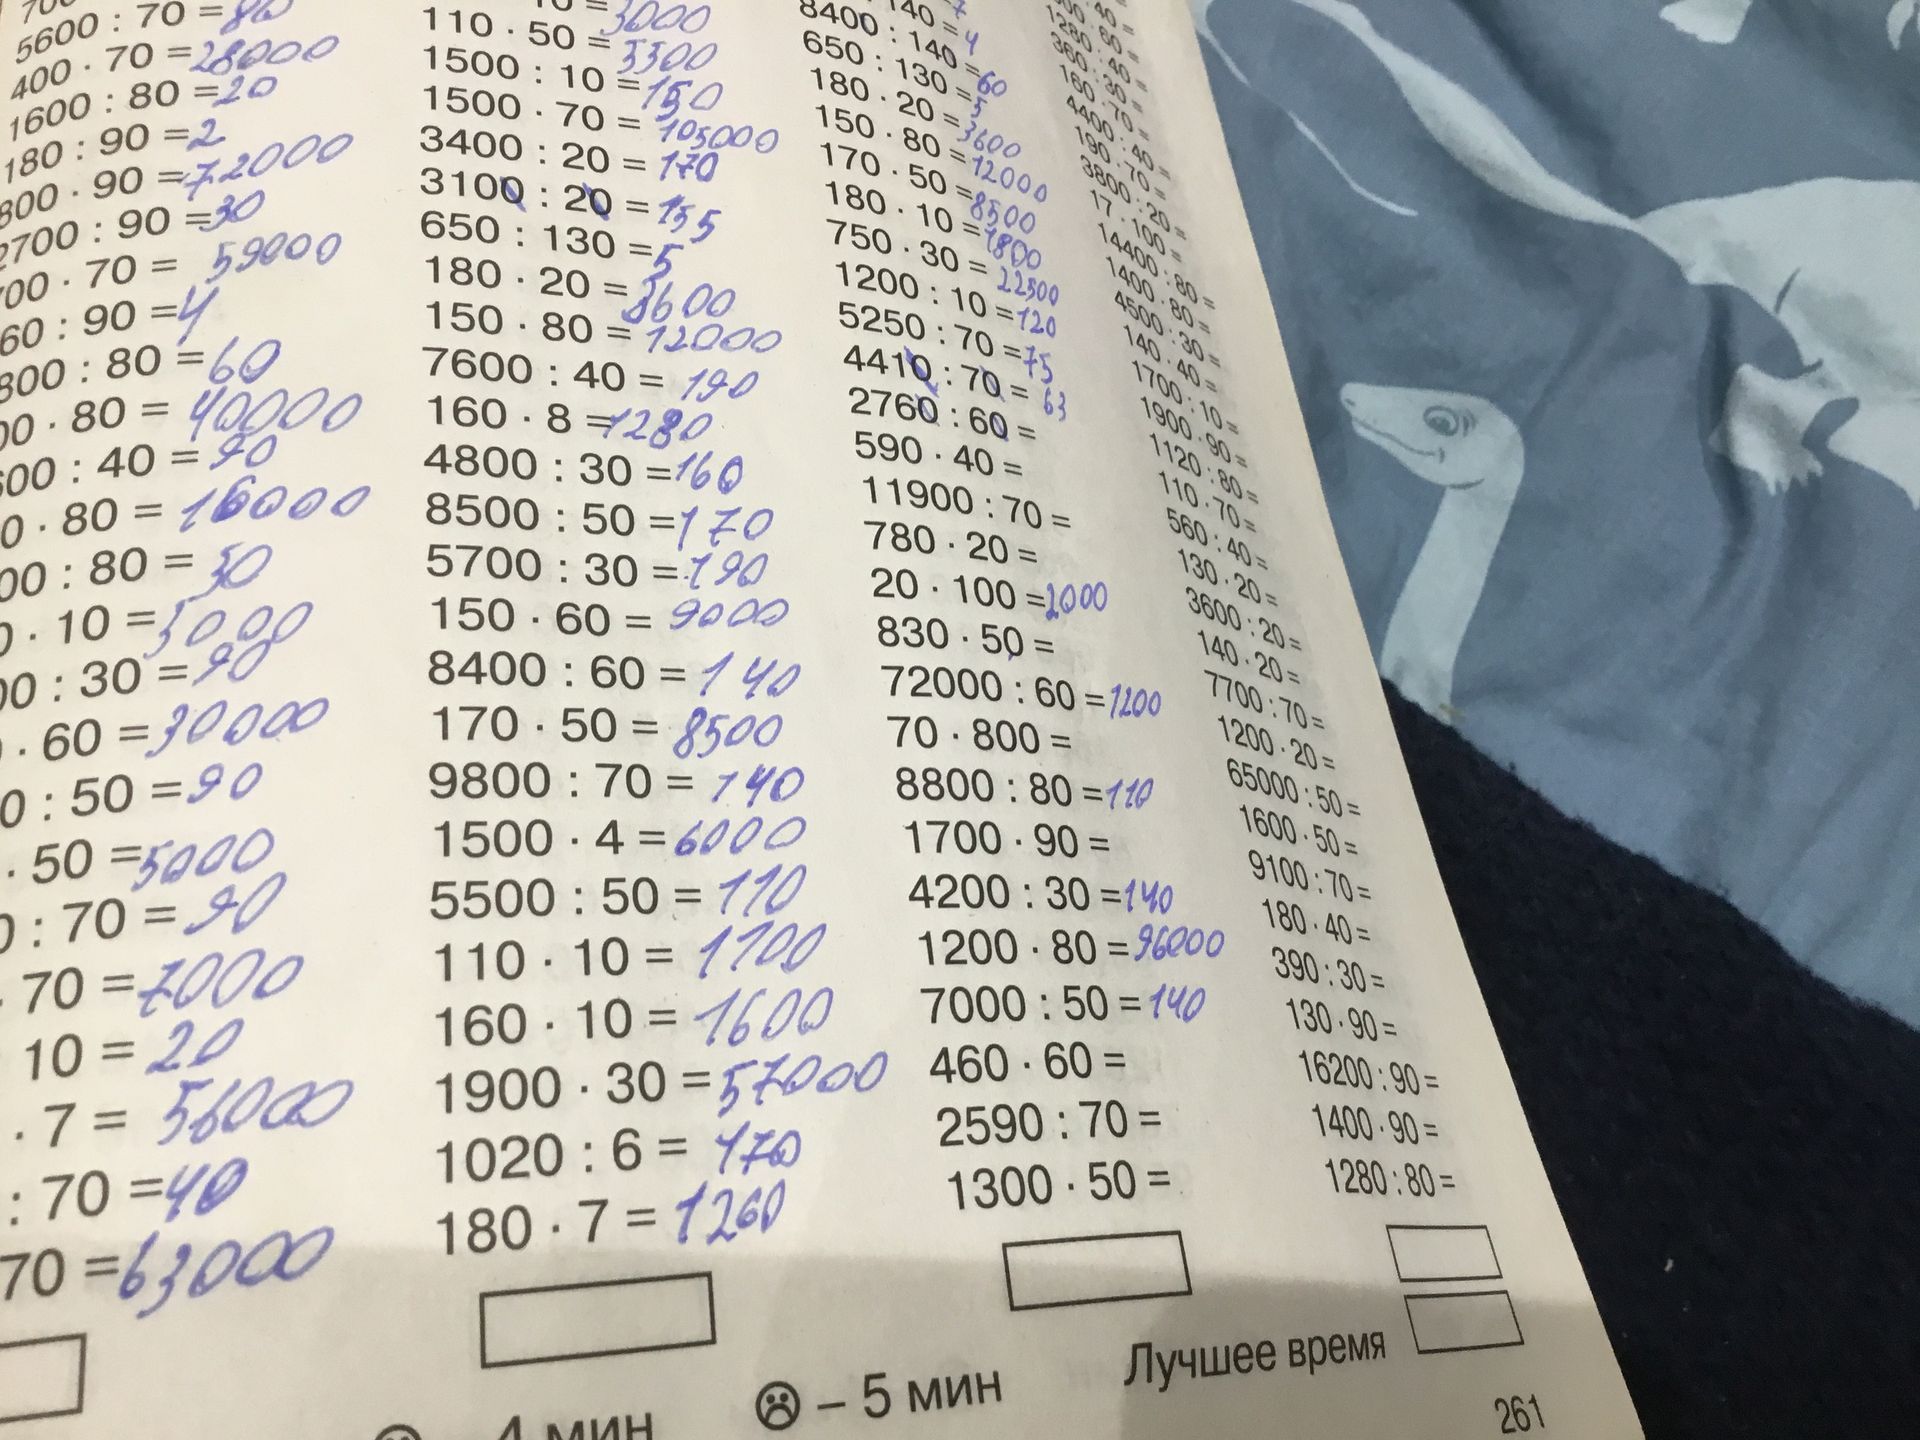 5600 : 70 = 80
400 · 70 = 28000
1600 : 80 = 20
180 : 90 = 2
800 · 90 = 72000
2700 : 90 = 30
00 · 70 = 59000
60 : 90 = 4
800 : 80 = 60
00 · 80 = 40000
600 : 40 = 90
0 · 80 = 16000
00 : 80 = 30
0 · 10 = 5000
00 : 30 = 90
· 60 = 30000
0 : 50 = 90
· 50 = 5000
0 : 70 = 90
70 = 7000
10 = 20
· 7 = 56000
: 70 = 40
70 = 63000
10 = 3000
110 · 50 = 5500
1500 : 10 = 150
1500 · 70 = 105000
3400 : 20 = 170
3100 : 20 = 155
650 : 130 = 5
180 · 20 = 3600
150 · 80 = 12000
7600 : 40 = 190
160 · 8 = 1280
4800 : 30 = 160
8500 : 50 = 170
5700 : 30 = 190
150 · 60 = 9000
8400 : 60 = 140
170 · 50 = 8500
9800 : 70 = 140
1500 · 4 = 6000
5500 : 50 = 110
110 · 10 = 1100
160 · 10 = 1600
1900 · 30 = 57000
1020 : 6 = 170
180 · 7 = 1260
140 = 4
8400 : 140 = 60
650 : 130 = 5
180 · 20 = 3600
150 · 80 = 12000
170 · 50 = 8500
180 · 10 = 1800
750 · 30 = 22500
1200 : 10 = 120
5250 : 70 = 75
4410 : 70 = 63
2760 : 60 =
590 · 40 =
11900 : 70 =
780 · 20 =
20 · 100 = 2000
830 · 50 =
72000 : 60 = 1200
70 · 800 =
8800 : 80 = 110
1700 · 90 =
4200 : 30 = 140
1200 · 80 = 96000
7000 : 50 = 140
460 · 60 =
2590 : 70 =
1300 · 50 =
1280 : 40 =
360 : 30 =
160 · 70 =
4400 : 40 =
190 · 70 =
3800 : 20 =
17 · 100 =
14400 : 80 =
1400 · 80 =
4500 : 30 =
140 · 40 =
1700 : 10 =
1900 · 90 =
1120 : 80 =
110 · 70 =
560 : 40 =
130 · 20 =
3600 : 20 =
140 · 20 =
7700 : 70 =
1200 · 20 =
65000 : 50 =
1600 · 50 =
9100 : 70 =
180 · 40 =
390 : 30 =
130 · 90 =
16200 : 90 =
1400 · 90 =
1280 : 80 =
Лучшее время
– 4 мин
– 5 мин
261